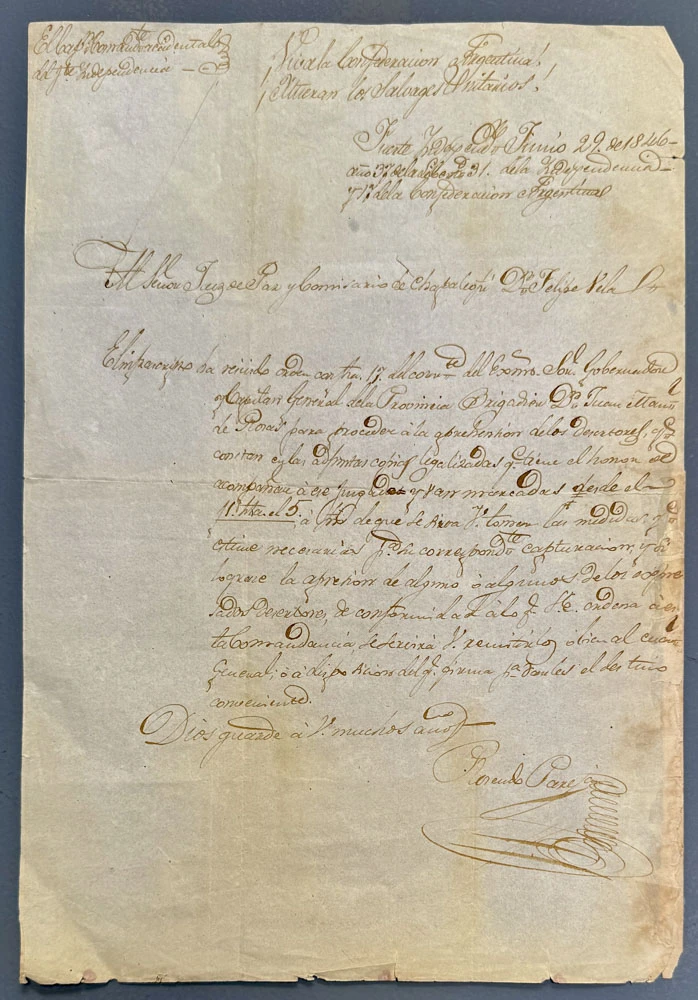 El Cap.n Comand.te accidental
del F.te Independencia —
¡Viva la Confederacion Argentina!
¡Mueran los Salvages Unitarios!
Fuerte Independ.a Junio 29. de 1846-
año 37. de la Libertad 31. de la Independencia
y 17. de la Confederacion Argentina
Al Señor Juez de Paz y Comisario de Chapaleofú D.n Felipe Vela
El infrascripto ha recivido orden con fha. 17. del corr.te del Exmo. Sor. Gobernador
y Capitan General de la Provincia Brigadier D.n Juan Man.l
de Rosas para proceder á la aprehension de los desertores, q.e
constan en las adjuntas copias legalizadas q.e tiene el honor de
acompañar á ese Juzgado y van marcadas desde el
11 hta. el 5. á fin de que se sirva V. tomar las medidas q.e
estime necesarias p.a su correspond.te capturacion, y si
lograse la aprension de alguno ó algunos de los expre
sados desertores, de conformidad á lo q.e S.E. ordena á es
ta Comandancia, se servirá V. remitirlos ó bien al cuartel
General, ó á disposicion del q.e firma p.a darles el destino
conveniente.
Dios guarde á V. muchos años
Rosendo Parejas